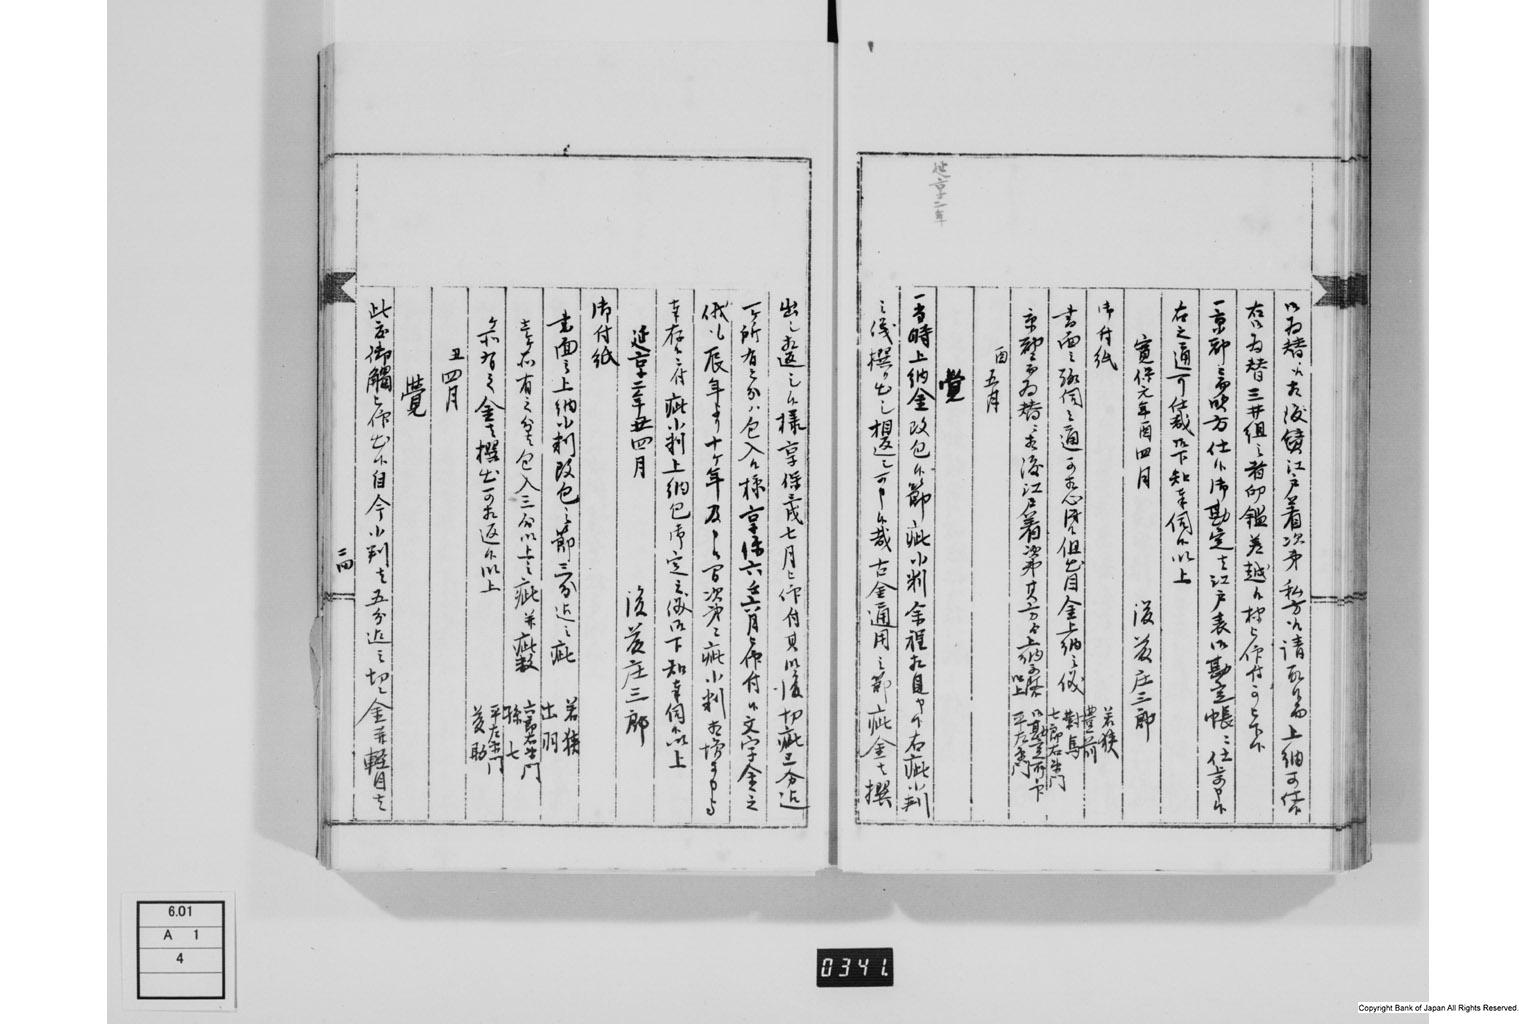 延享二年
御為替ニ相渡儀江戸着次第私方江請取候而上納可仕
右御為替三井組之者印鑑差越候様被仰付可被下候
一京都ニ而吹方仕候御勘定者江戸表御勘定帳ニ仕上ケ申候
右之通可仕哉御下知奉伺候以上
寛保元年酉四月 後藤庄三郎
御付紙
書面之趣伺之通可相心得候但出目金上納之儀
京都ニ而為替ニ相渡江戸着次第其方より上納可仕候以上
若狭
豊前
對馬
七郎右衛門
御勘定所印
平左衛門
酉五月
覺
一當時上納金改包候節疵小判余程相見申候右疵小判
之儀撰出し相返シ可申候哉古金通用之節疵金者撰
出し相返シ候様享保三戌七月被仰付其以後切疵三分迄
一ケ所有之分ハ包入候様享保六丑六月被仰付候文字金之
儀も辰年より十ケ年及申候間次第ニ疵小判相増可申与
奉存候ニ付疵小判上納包御定之儀御下知奉伺候以上
延享二年丑四月 後藤庄三郎
御付紙
書面之上納小判改包之節三分迄之疵
壱ケ所有之分者包入三分以上之疵并疵数
ケ所有之金者撰出可相返候以上
若狭
出羽
六郎右衛門
孫七
平左衛門
藤助
丑四月
覺
此度御觸被仰出候自今小判者五分迄之切レ金并軽目者
二四
6.01
A 1
4
0341.
Copyright Bank of Japan All Rights Reserved.